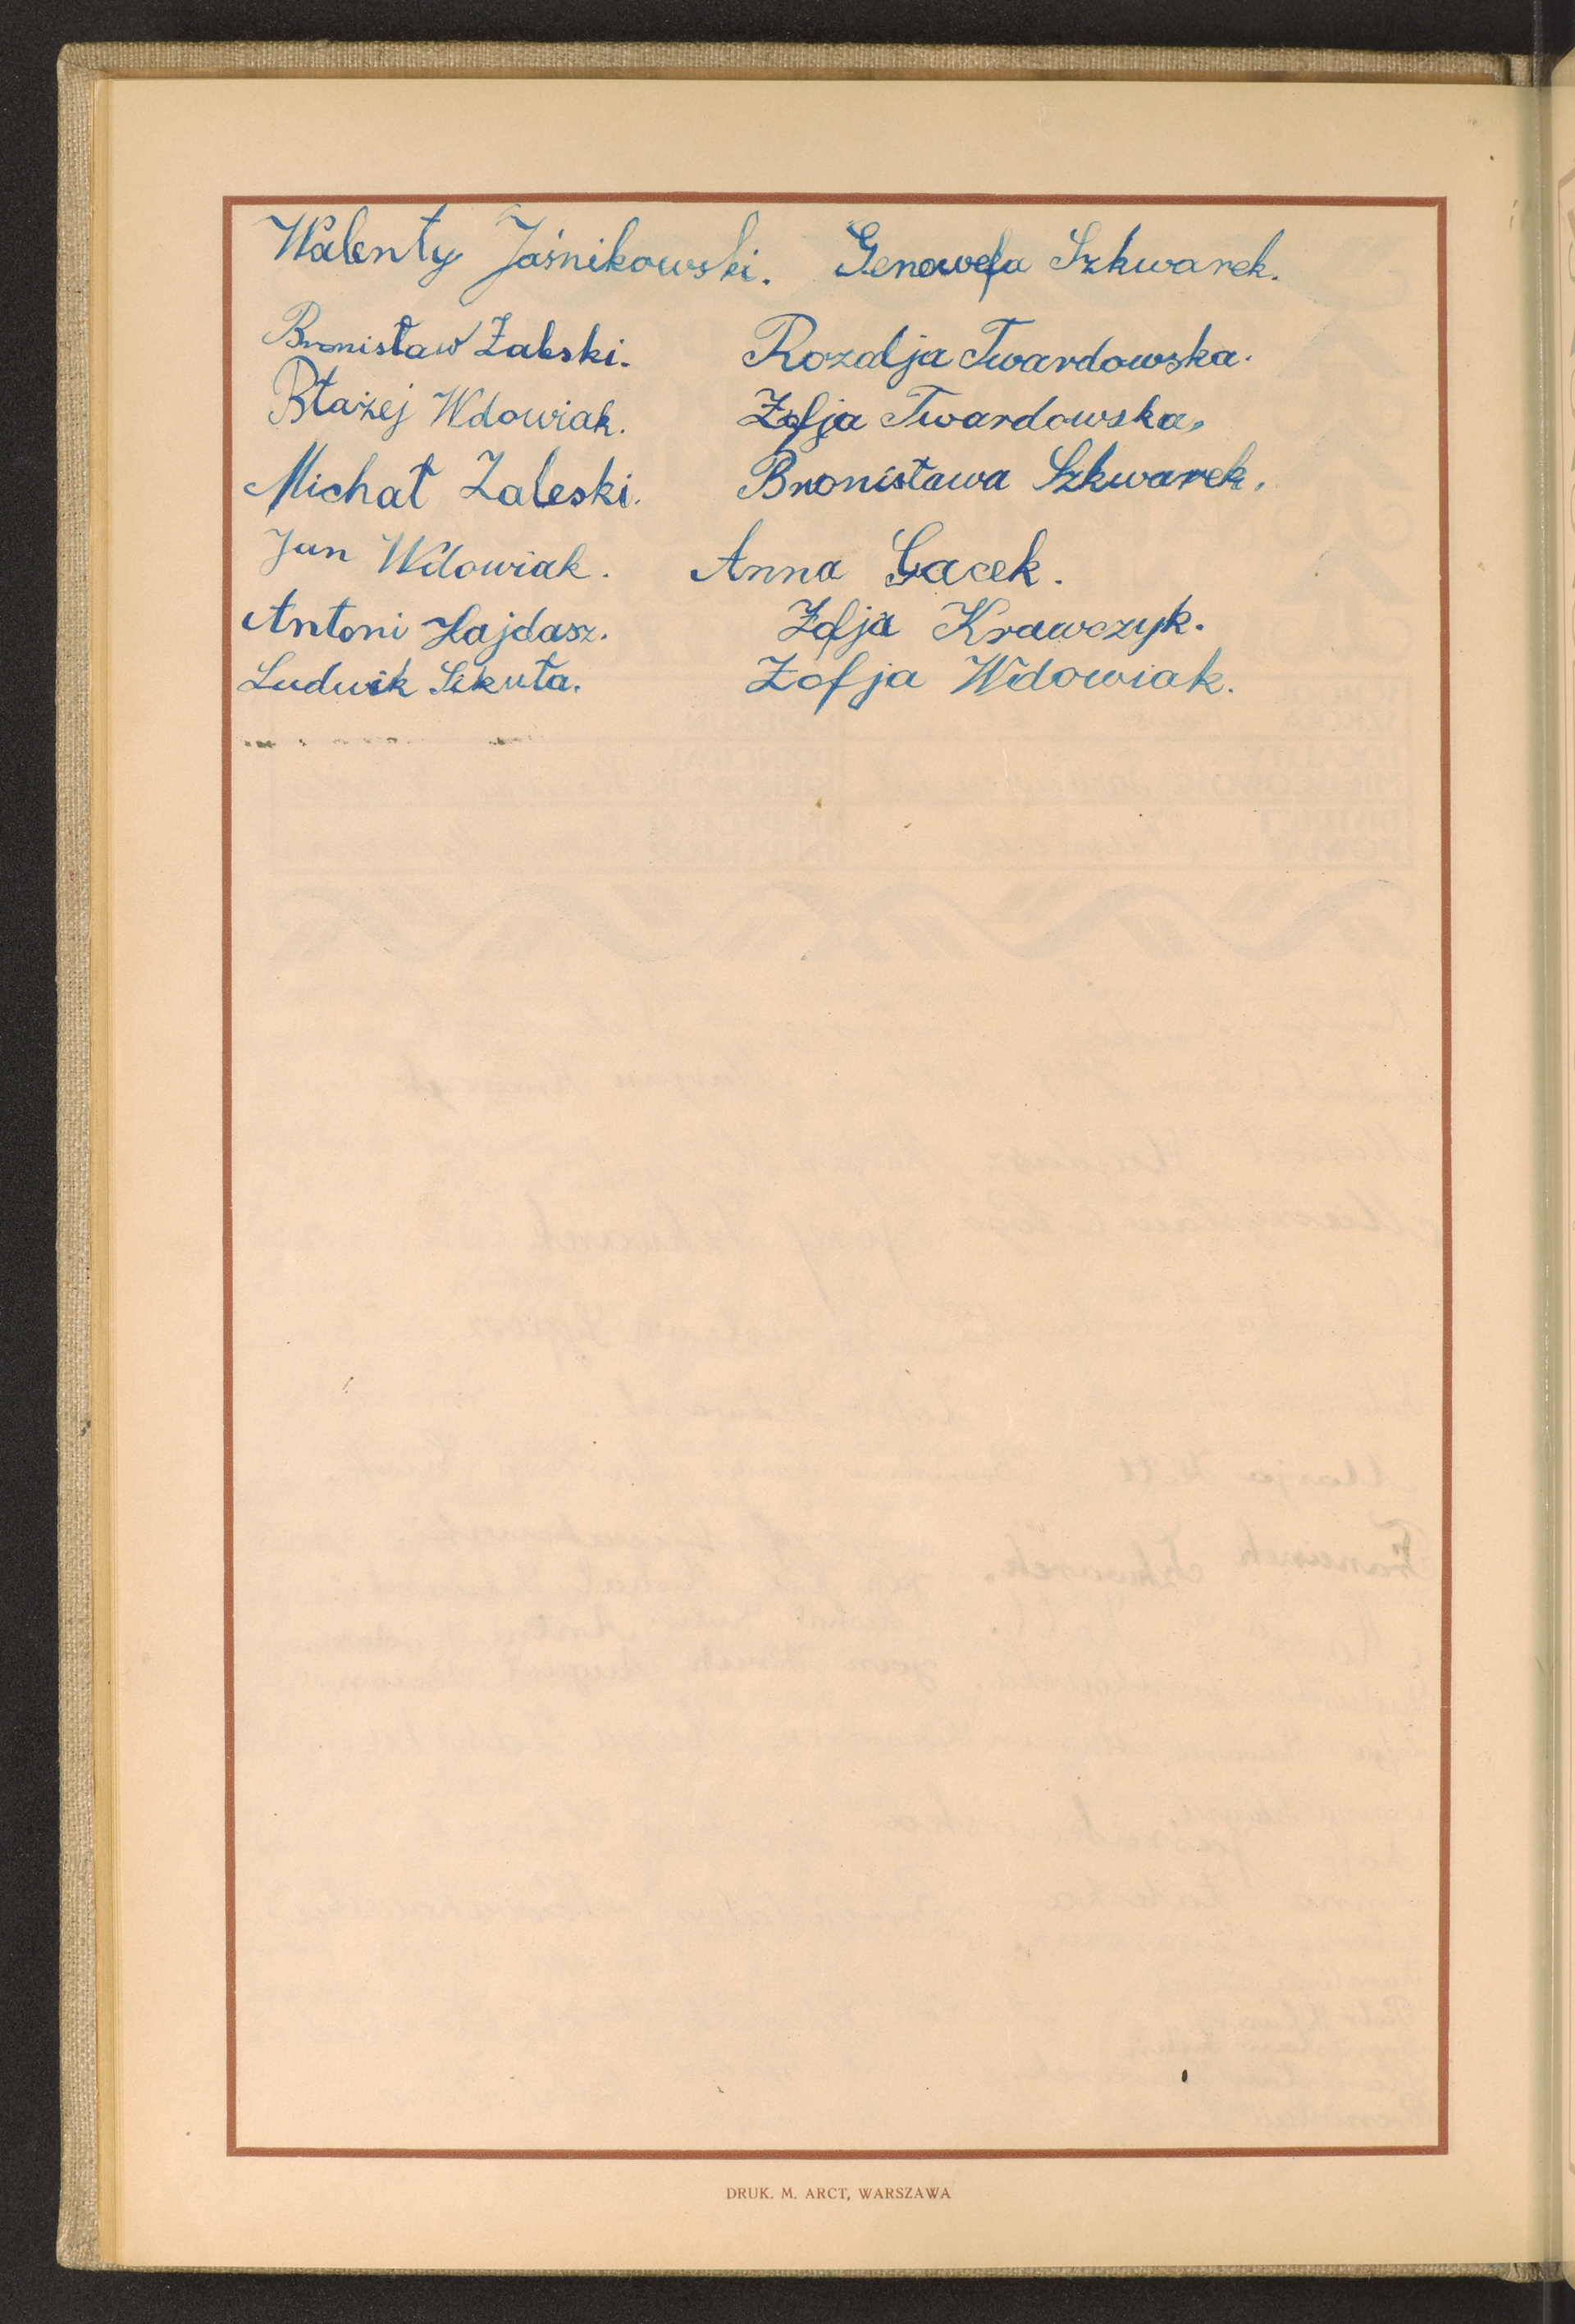 Walenty Jaśnikowski. Genowefa Szkwarek.
Bronisław Żabski. Rozalja Twardowska.
Błażej Wdowiak. Zofja Twardowska.
Michał Zaleski. Bronisława Szkwarek.
Jan Wdowiak. Anna Gacek.
Antoni Hajdasz. Zofja Krawczyk.
Ludwik Sikuta. Zofja Wdowiak.
DRUK. M. ARCT, WARSZAWA